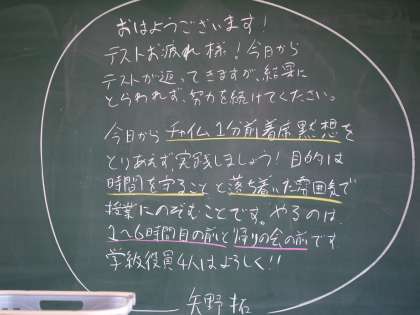 おはようございます!
テストお疲れ様!今日から
テストが返ってきますが、結果に
とらわれず、努力を続けてください。
今日からチャイム1分前着席黙想を
とりあえず、実践しましょう!目的は
時間を守ることと落ち着いた雰囲気で
授業にのぞむことです。やるのは、
1〜6時間目の前と帰りの会の前です
学級役員4人はよろしく!!
矢野 拓